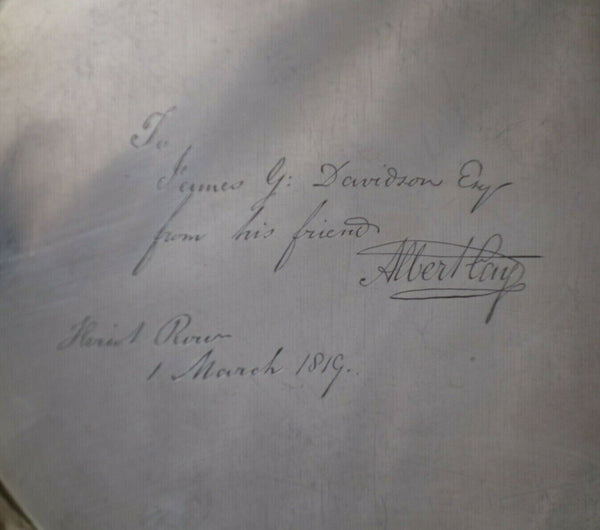 To
James G: Davidson Esq
from his friend
Albert Cay
Heriot Row
1 March 1819.